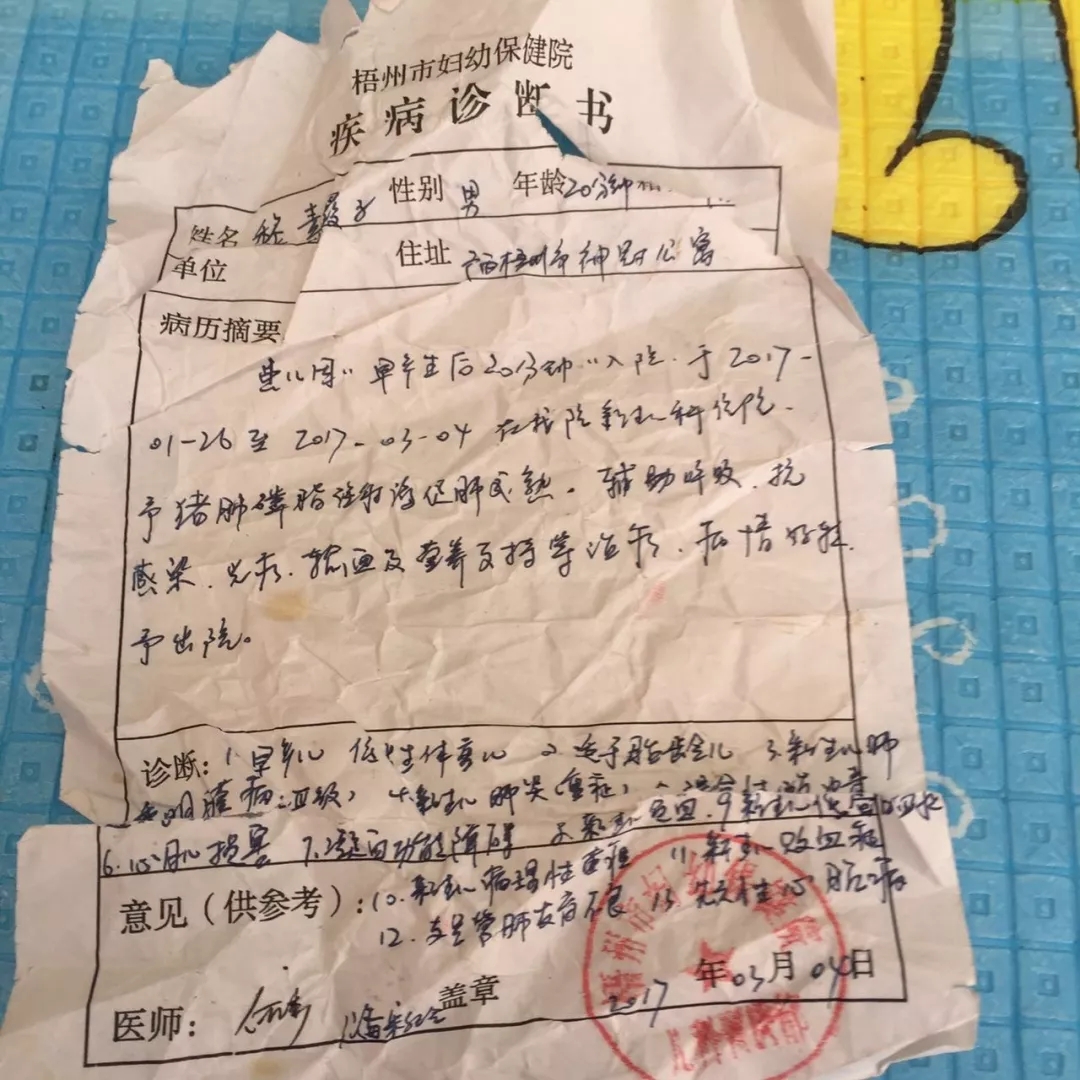 梧州市妇幼保健院
疾病诊断书
姓名 性别 男 年龄 20分钟
单位 住址 梧州市神冠公寓
病历摘要
患儿因"早产生后20分钟"入院. 于2017-
01-26至2017-03-04在我院新生儿科住院.
予猪肺磷脂注射液促肺成熟。辅助呼吸. 抗
感染. 光疗. 输血及营养支持等治疗. 病情好转.
予出院。
诊断: 1.早产儿 低出生体重儿 2.适于胎龄儿 3.新生儿肺
透明膜病 4.新生儿肺炎(重症)
6.心肌损害 7.凝血功能障碍 8.新生儿贫血. 9.新生儿低
意见(供参考): 10.新生儿病理性黄疸 11.新生儿败血症
12.支气管肺发育不良 13.先天性心脏病
2017年03月04日
医师: 盖章